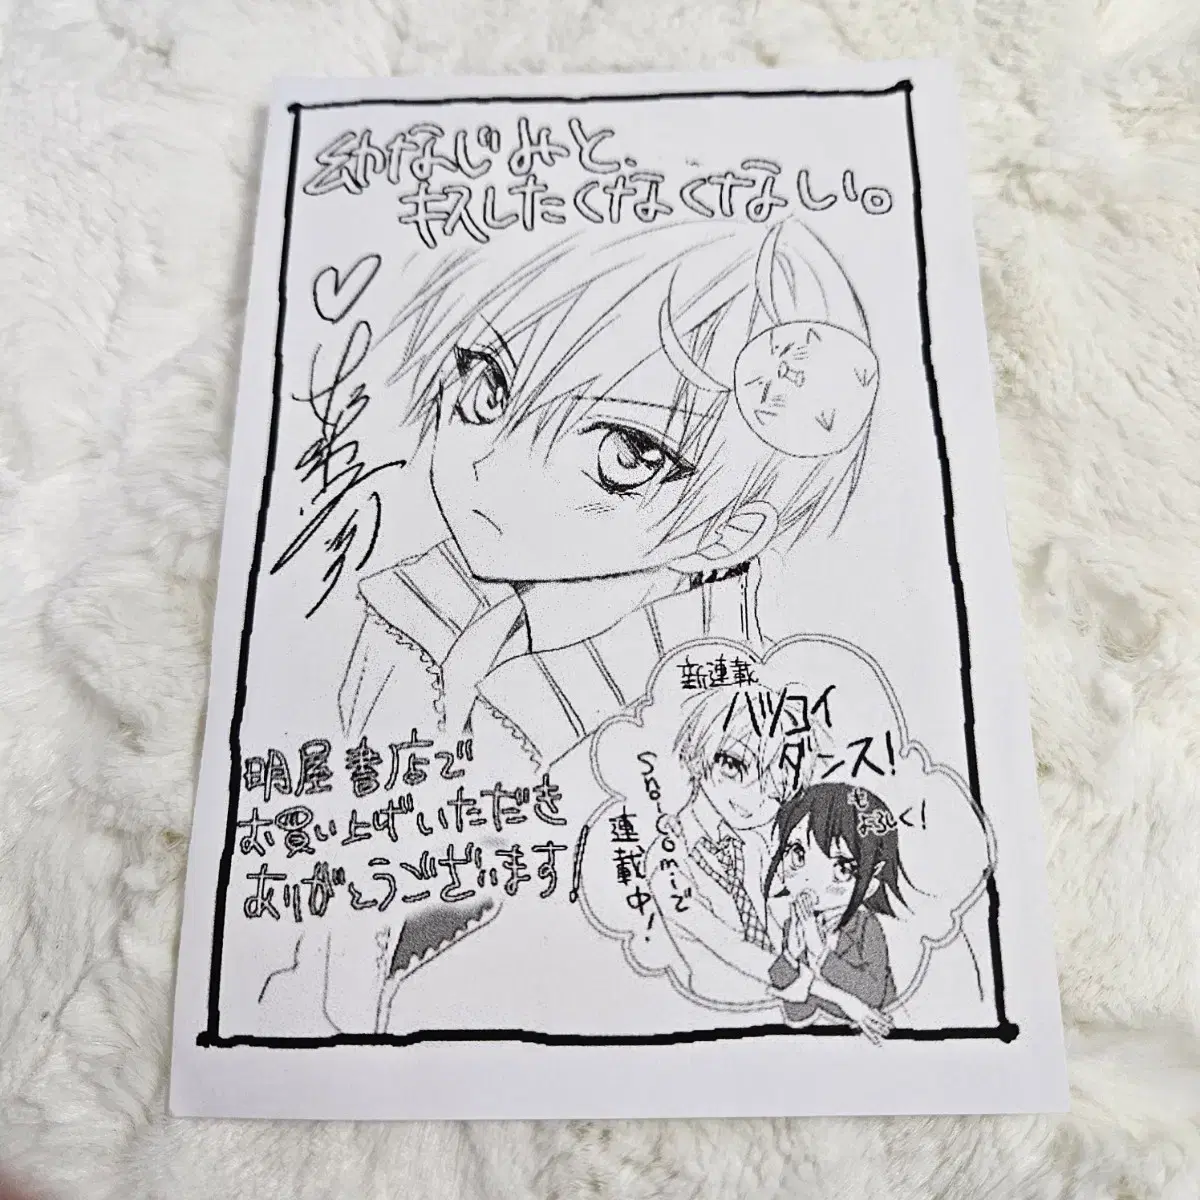 幼なじみと、
キスしたくなくなくない。
新連載
ハツコイ
ダンス!
も
よろしく!
Sho-Comiで
連載中!
明屋書店で
お買い上げいただき
ありがとうございます!